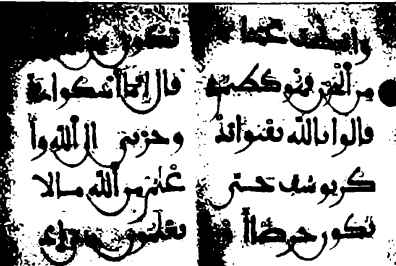 وابيضت عينا
من الحزن فهو كظيم
قالوا تالله تفتوا تذ
كر يوسف حتى
تكون حرضا أو
تكون من
قال إنما أشكوا بثي
وحزني إلى الله وأ
علم من الله ما لا
تعلمون